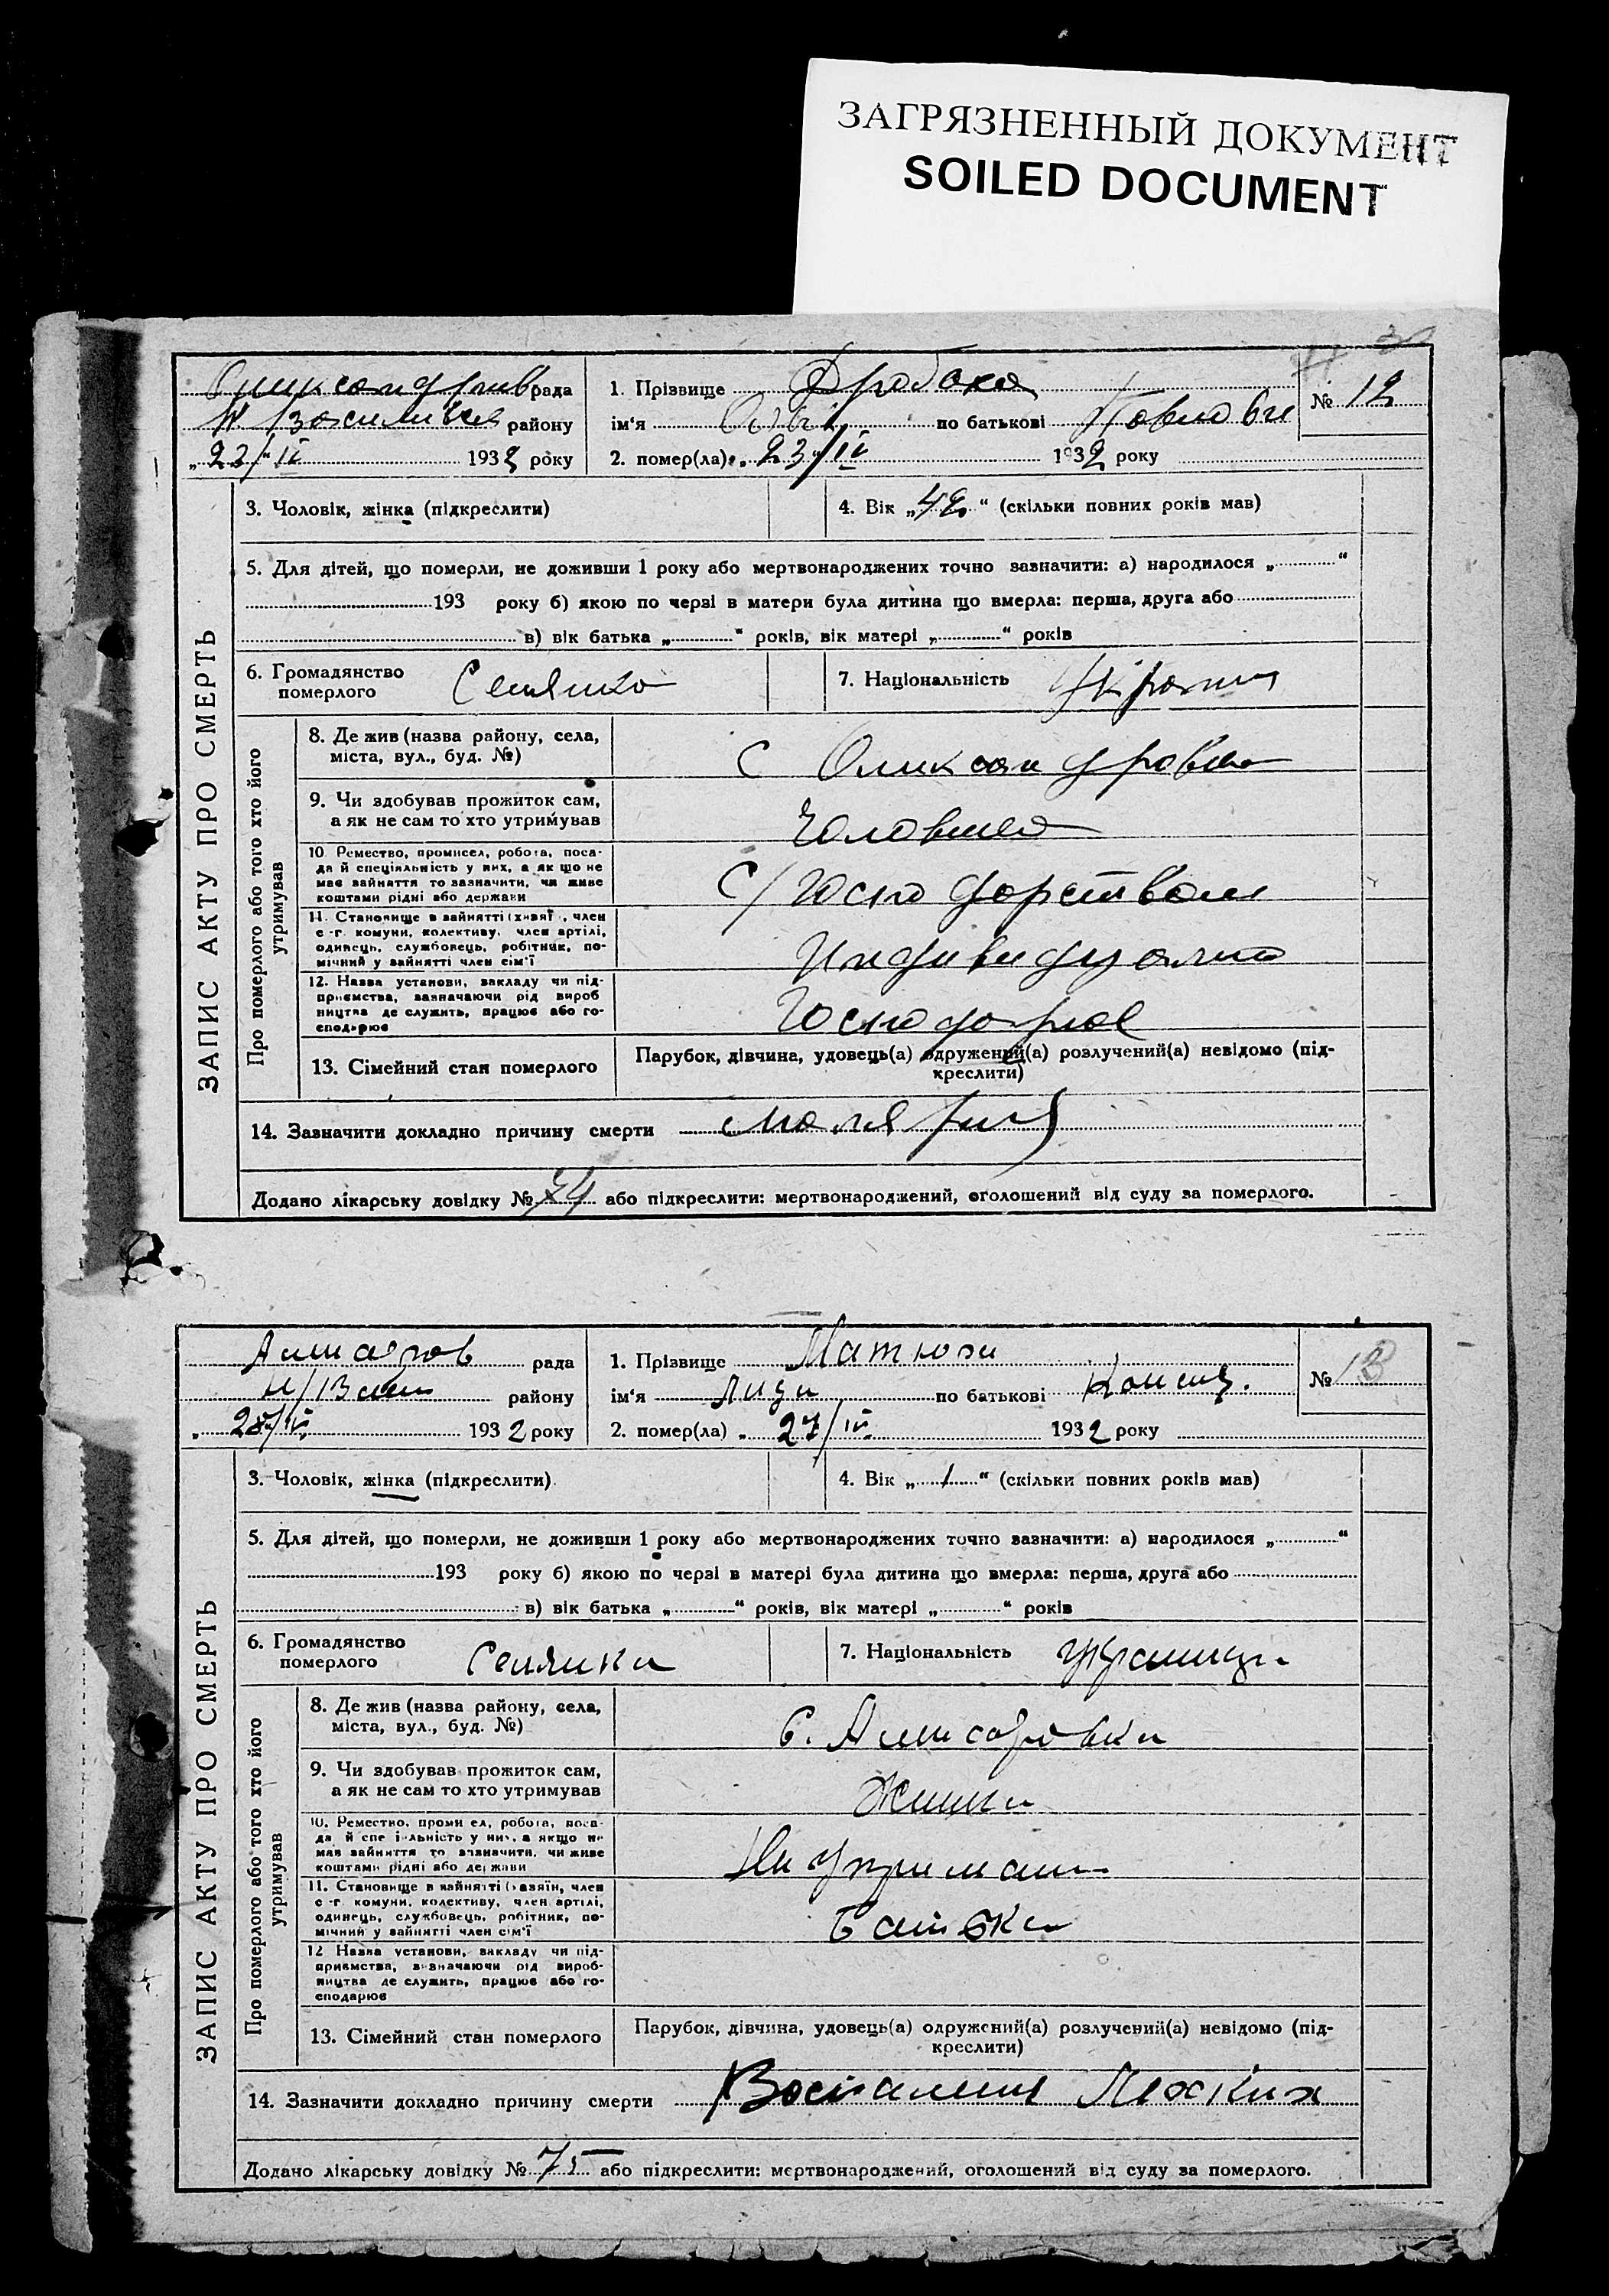 ЗАГРЯЗНЕННЫЙ ДОКУМЕНТ
SOILED DOCUMENT
рада
району
„23/IV 1932 року
1. Прізвище
ім'я по батькові Павловн
№ 12
2. помер(ла) „23/IV 1932 року
3. Чоловік, жінка (підкреслити)
4. Вік „42“ (скільки повних років мав)
5. Для дітей, що померли, не доживши 1 року або мертвонароджених точно зазначити: а) народилося „ “
193 року б) якою по черзі в матери була дитина що вмерла: перша, друга або
в) вік батька „ “ років, вік матері „ “ років
6. Громадянство
померлого
Селянка
7. Національність
ЗАПИС АКТУ ПРО СМЕРТЬ
Про померлого або того хто його
утримував
8. Де жив (назва району, села,
міста, вул., буд. №)
С Олександровка
9. Чи здобував прожиток сам,
а як не сам то хто утримував
10 Ремество, промисел, робота, поса-
да й спеціяльність у них, а як що не
має зайняття то зазначити, чи живе
коштами рідні або держави
С/Господорством
11. Становище в зайнятті (хазяї , член
с -г. комуни, колективу, член артілі,
одинець, службовець, робітник, по-
мічний у зайнятті член сім'ї
12. Назва установи, закладу чи під-
приємства, зазначаючи рід вироб
ництва де служить, працює або го-
сподарює
13. Сімейний стан померлого
Парубок, дівчина, удовець(а) одружений(а) розлучений(а) невідомо (під-
креслити)
14. Зазначити докладно причину смерти
маля рия
Додано лікарську довідку № 74 або підкреслити: мертвонароджений, оголошений від суду за померлого.
рада
району
„28/IV 1932 року
1. Прізвище Матюха
ім'я Лида по батькові
№ 13
2. помер(ла) „27/IV 1932 року
3. Чоловік, жінка (підкреслити)
4. Вік „1“ (скільки повних років мав)
5. Для дітей, що померли, не доживши 1 року або мертвонароджених точно зазначити: а) народилося „ “
193 року б) якою по черзі в матері була дитина що вмерла: перша, друга або
в) вік батька „ “ років, вік матері „ “ років
6. Громадянство
померлого
Селянка
7. Національність
ЗАПИС АКТУ ПРО СМЕРТЬ
Про померлого або того хто його
утримував
8. Де жив (назва району, села,
міста, вул., буд. №)
9. Чи здобував прожиток сам,
а як не сам то хто утримував
10. Ремество, проми ел, робота, поса-
да й спе і льність у них, а якщо не
має зайняття то зазначити, чи живе
коштами рідні або держави
На утриман
11. Становище в зайнятті ( азяїн, член
с -г. комуни, колективу, член артілі,
одинець, службовець, робітник, по-
мічний у зайнятті член сім'ї
Батька
12 Назва установи, закладу чи під-
приємства, зазначаючи рід вироб-
ництва де служить, працює або го-
сподарює
13. Сімейний стан померлого
Парубок, дівчина, удовець(а) одружений(а) розлучений(а) невідомо (під-
креслити)
14. Зазначити докладно причину смерти
Воспаления Лехких
Додано лікарську довідку № 75 або підкреслити: мертвонароджений, оголошений від суду за померлого.